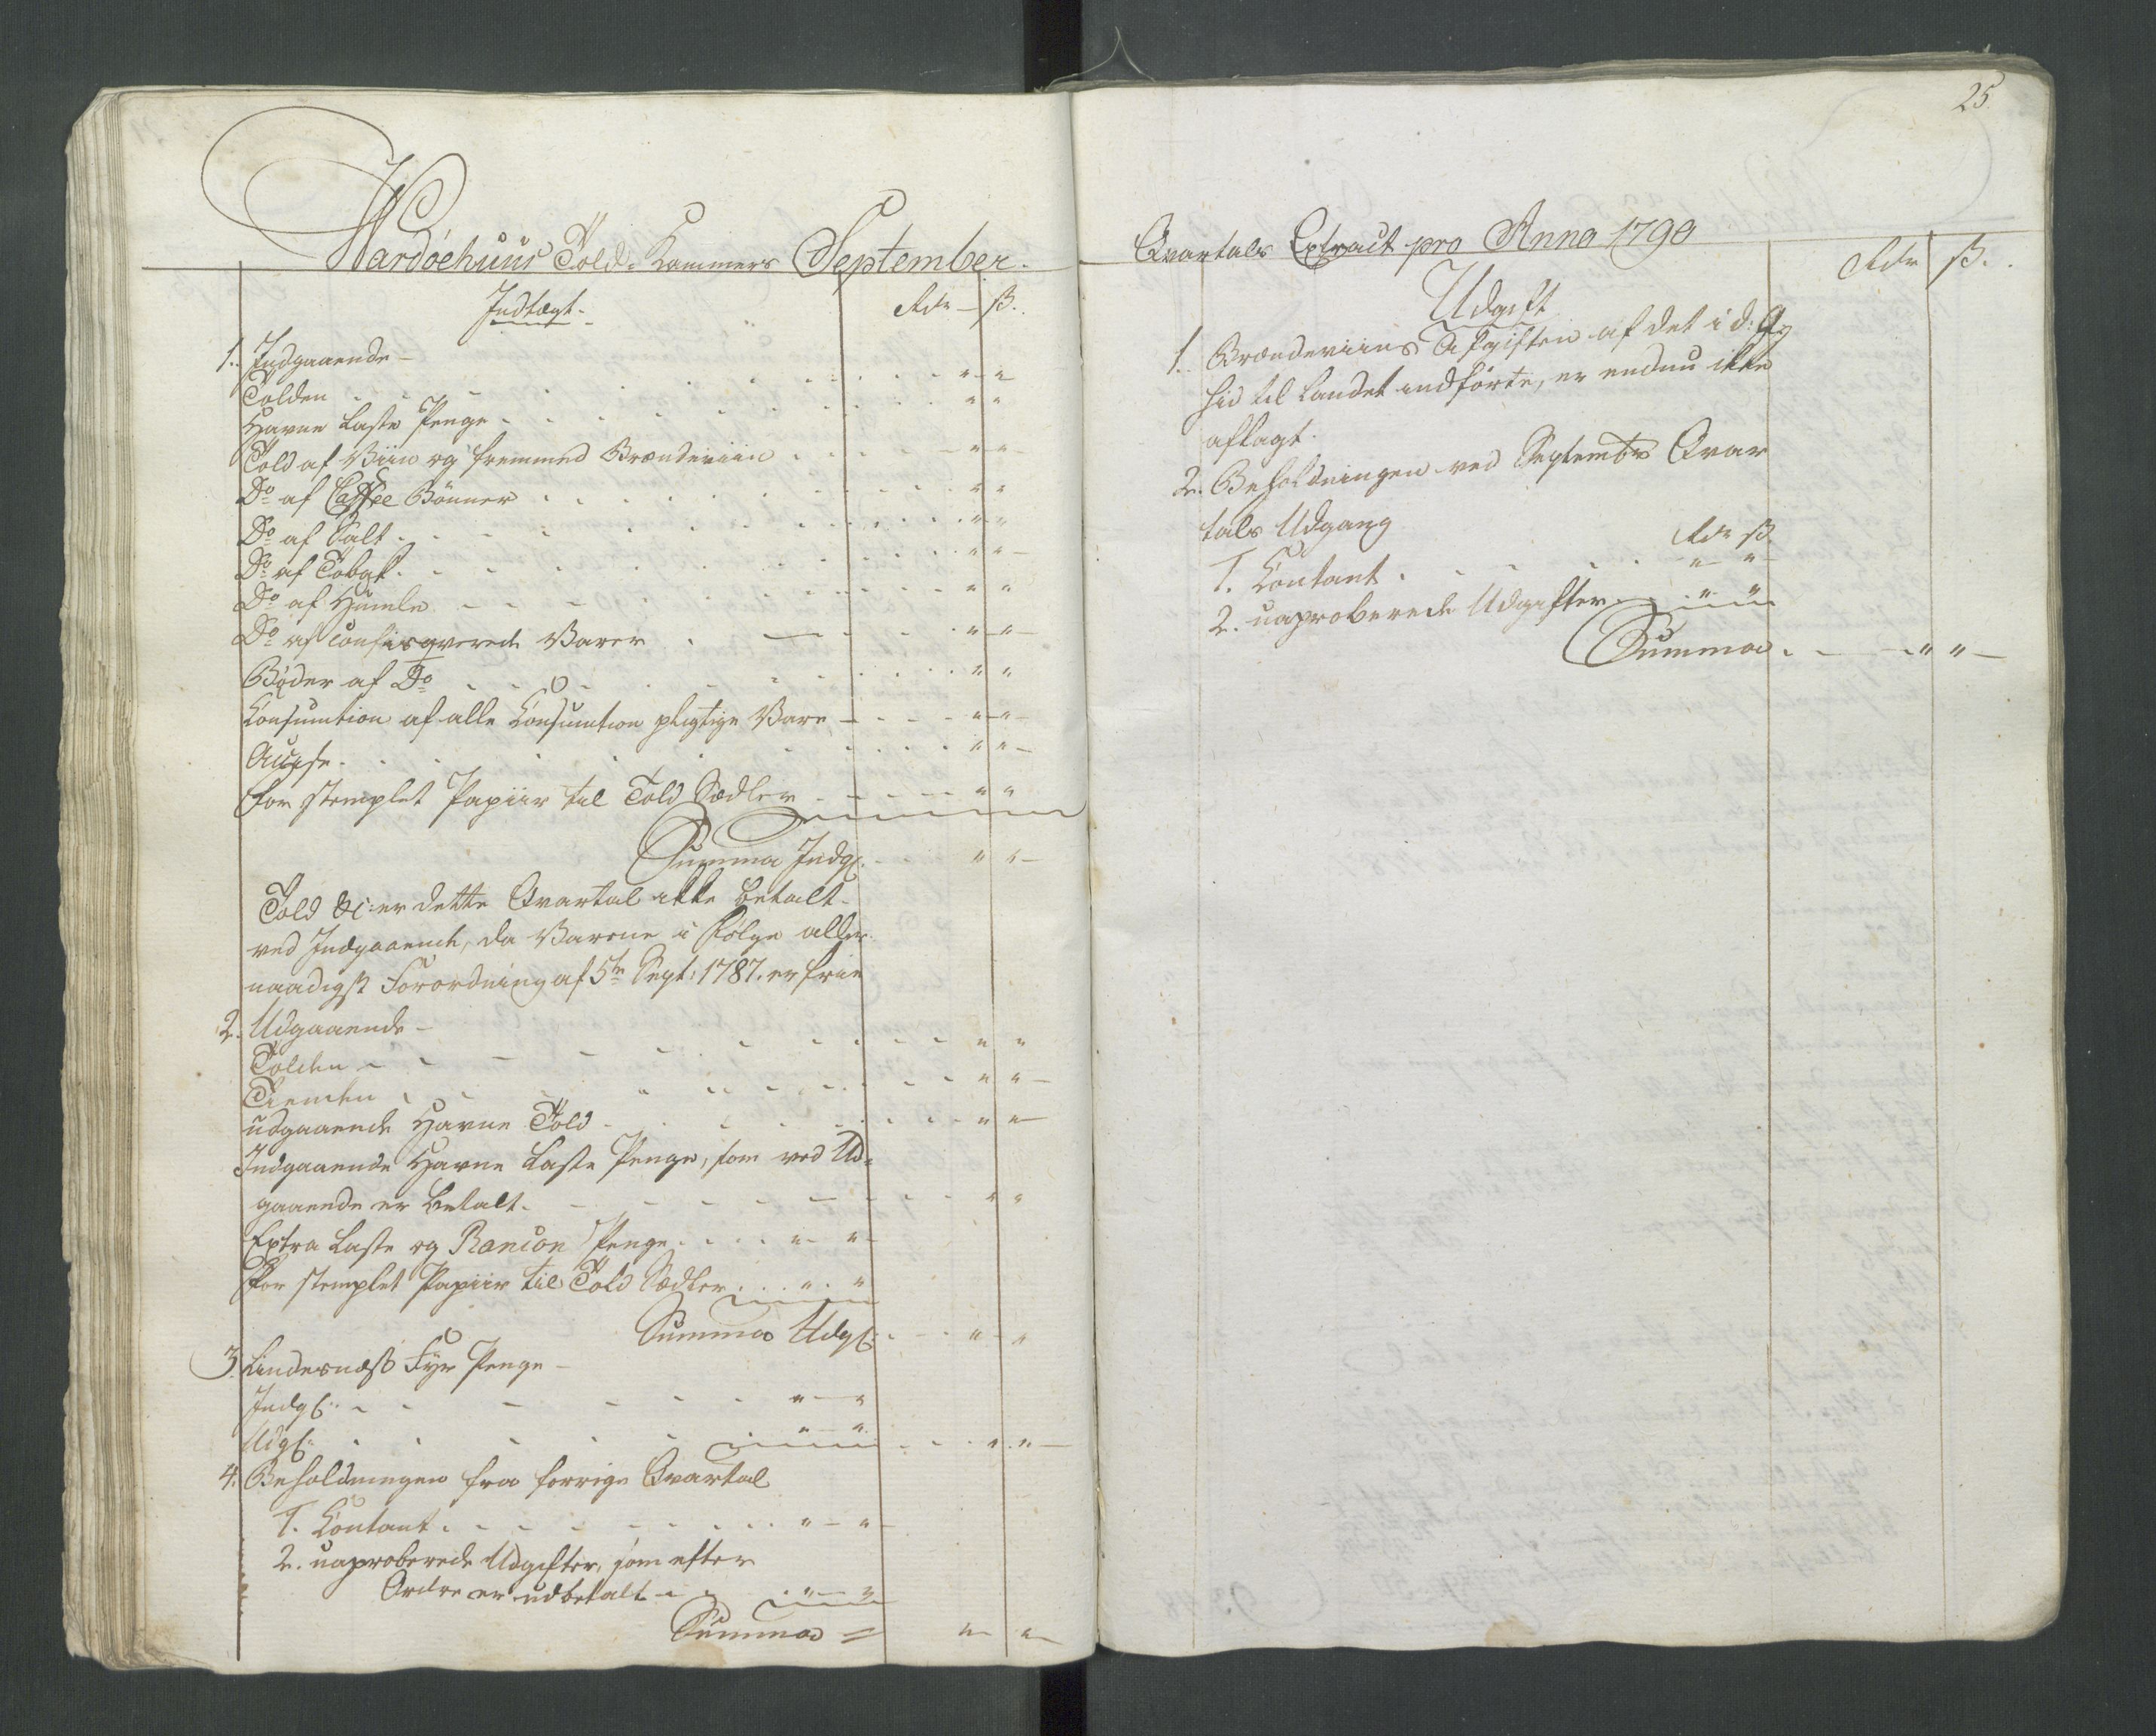 Wardöehuus Told-Kammers September
Indtægt.
Rdr ß.
1. Indgaaende
Tolden " "
Havne Laste Penge " "
Told af Viin og fremmed Brændeviin " "
Do af Caffee Bönner " "
Do af Salt " "
Do af Tobak " "
Do af Humle " "
Do af Confisqverede Varer " "
Bøder af Do " "
Consumtion af alle Consumtion pligtige Vare " "
Accise " "
for stemplet Papiir til Told Sædler " "
Summa Indg: " "
Told &c: er dette Qvartal ikke betalt
ved Indgaaende, da Varene i Følge aller
naadigst Forordning af 5te Sept: 1787. er frie
2. Udgaaende
Tolden " "
Tienden " "
udgaaende Havne Told " "
Indgaaende Havne Laste Penge, som ved Ud-
gaaende er betalt " "
Extra Laste og Rancon Penge " "
for stemplet Papiir til Told Sædler " "
Summa Udg: " "
3. Lindernæs Fyr Penge
Indg: " "
Udg: " "
4. Beholdningen fra forrige Qvartal
1. Contant " "
2. uaproberede Udgifter, som efter
Ordre er udbetalt " "
Summa " "
25.
Qvartals Extract pro Anno 1790
Rdr ß.
Udgift
1. Brændeviins Afgiften af det i d:
hid til Landet indførte, er endnu ikke
aflagt.
2. Beholdningen ved Septembr Qvar
tals Udgang
Rdr ß.
1. Contant " "
2. uaproberede Udgifter " "
Summa " "